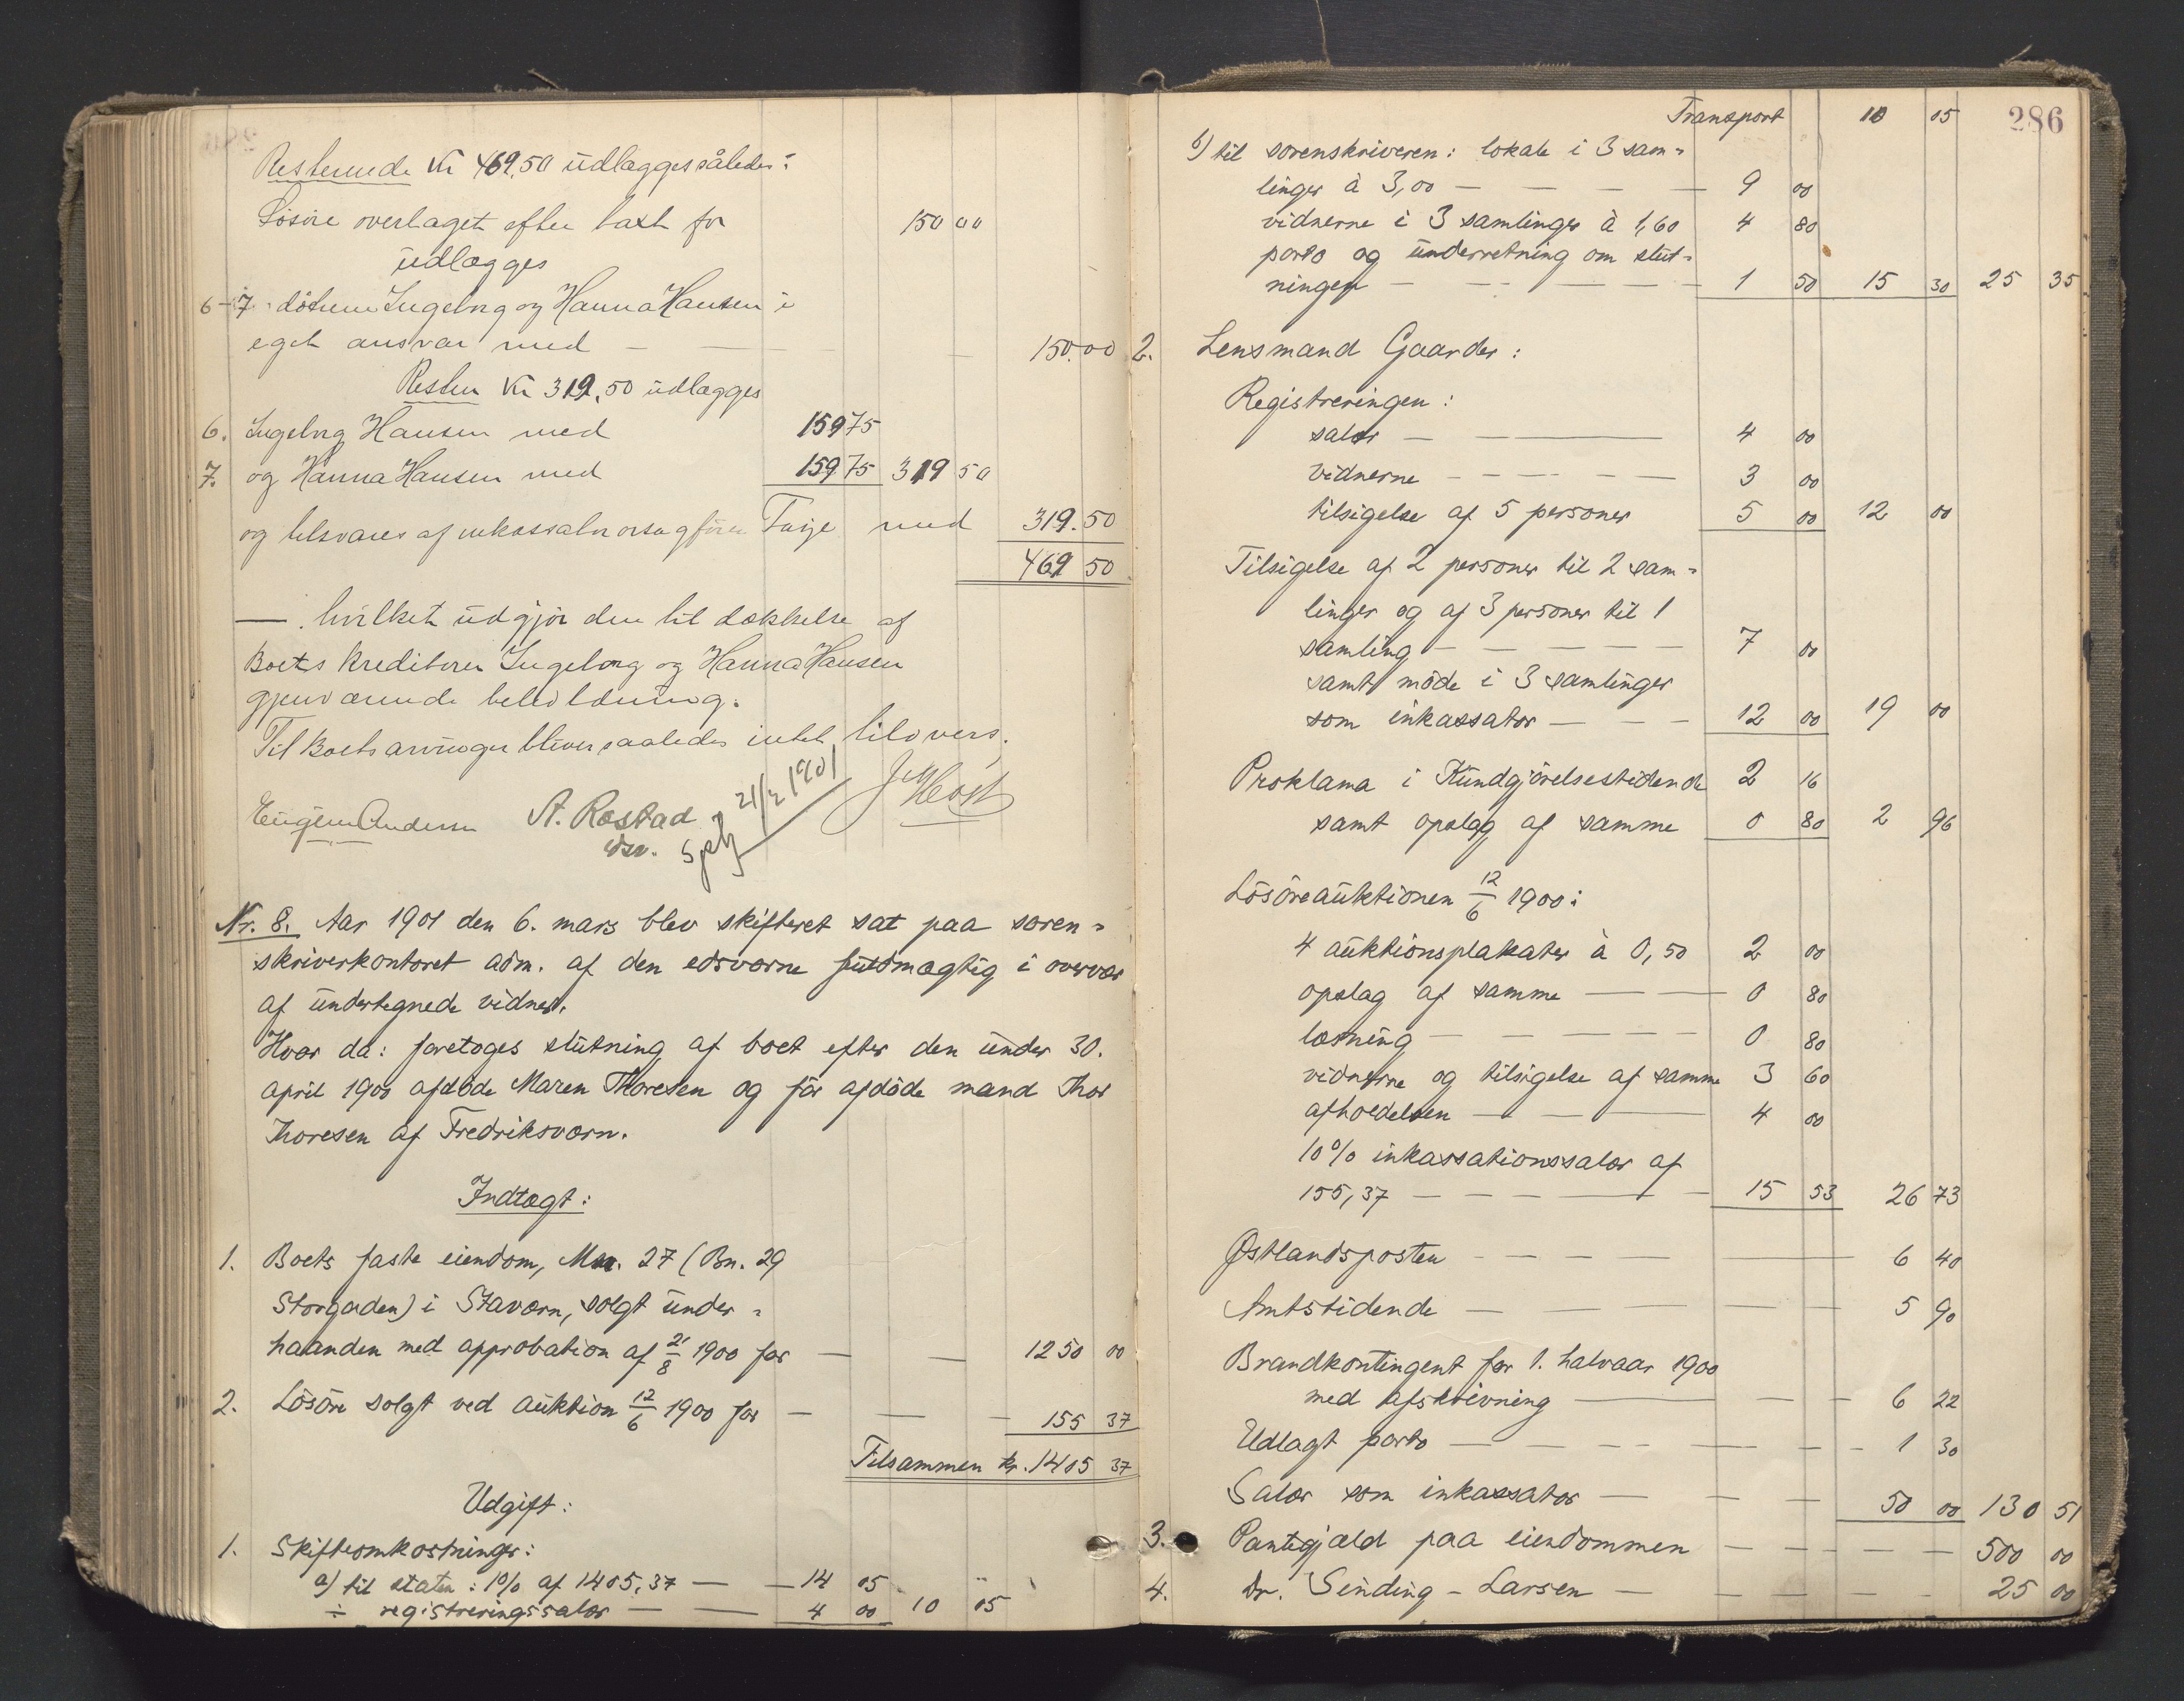 Resterende Kr 469,50 udlægges således:
Løsøre overtaget efter taxt for 150 00
udlægges
6-7 døtrene Ingeborg og Hanna Hansen i
eget ansvar med — — — 150.00
Resten Kr 319,50 udlægges
6. Ingeborg Hansen med 159 75
7. og Hanna Hansen med 159 75 319 50
og tilsvares af inkassator Faije med 319.50
469 50
— hvilket udgjør den til dækkelse af
Boets kreditorer Ingeborg og Hanna Hansen
gjenværende beholdning.
Til Boets arvinger bliver saaledes intet tilovers.
21/2 1901
Eugen Andersen A. Røstad J M Høst
Nr. 8. Aar 1901 den 6. mars blev skifteret sat paa soren=
skriverkontoret adm. af den edsvorne fuldmægtig i overvær
af undertegnede vidner.
Hvor da: foretoges slutning af boet efter den under 30.
april 1900 afdøde Maren Thoresen og før afdøde mand Thor
Thoresen af Fredriksværn.
Indtægt:
1. Boets faste eiendom, Mnr. 27 (Bn. 29
Storgaden) i Staværn, solgt under=
haanden med approbation af 21/8 1900 for — — 1250 00
2. Løsøre solgt ved auktion 12/6 1900 for — — — 155 37
Tilsammen kr. 1405 37
Udgift:
1. Skifteomkostninger:
a) til staten: 1% af 1405,37 — — 14 05
÷ registreringssalær — — 4 00 10 05
286
Transport 10 05
b) til sorenskriveren: lokale i 3 sam=
linger à 3,00 — — — — 9 00
vidnerne i 3 samlinger à 1,60 4 80
porto og underretning om slut=
ningen — — — — 1 50 15 30 25 35
2. Lensmand Gaarder:
Registreringen:
salær — — — 4 00
vidnerne — — — — 3 00
tilsigelse af 5 personer 5 00 12 00
Tilsigelse af 2 personer til 2 sam=
linger og af 3 personer til 1
samling — — — — 7 00
samt møde i 3 samlinger
som inkassator — — — 12 00 19 00
Proklama i Kundgjørelsestidende 2 16
samt opslag af samme 0 80 2 96
Løsøreauktionen 12/6 1900:
4 auktionsplakater à 0,50 2 00
opslag af samme — — 0 80
læsning — — — — 0 80
vidnerne og tilsigelse af samme 3 60
afholdelsen — — — 4 00
10% inkassationssalær af
155,37 — — — — — 15 53 26 73
Østlandsposten — — — — — 6 40
Amtstidende — — — — — 5 90
Brandkontingent for 1. halvaar 1900
med afskrivning — — — 6 22
Udlagt porto — — — — — — 1 30
Salær som inkassator — — — 50 00 130 51
3. Pantegjæld paa eiendommen — — — — — 500 00
4. Dr. Sinding-Larsen — — — — — 25 00